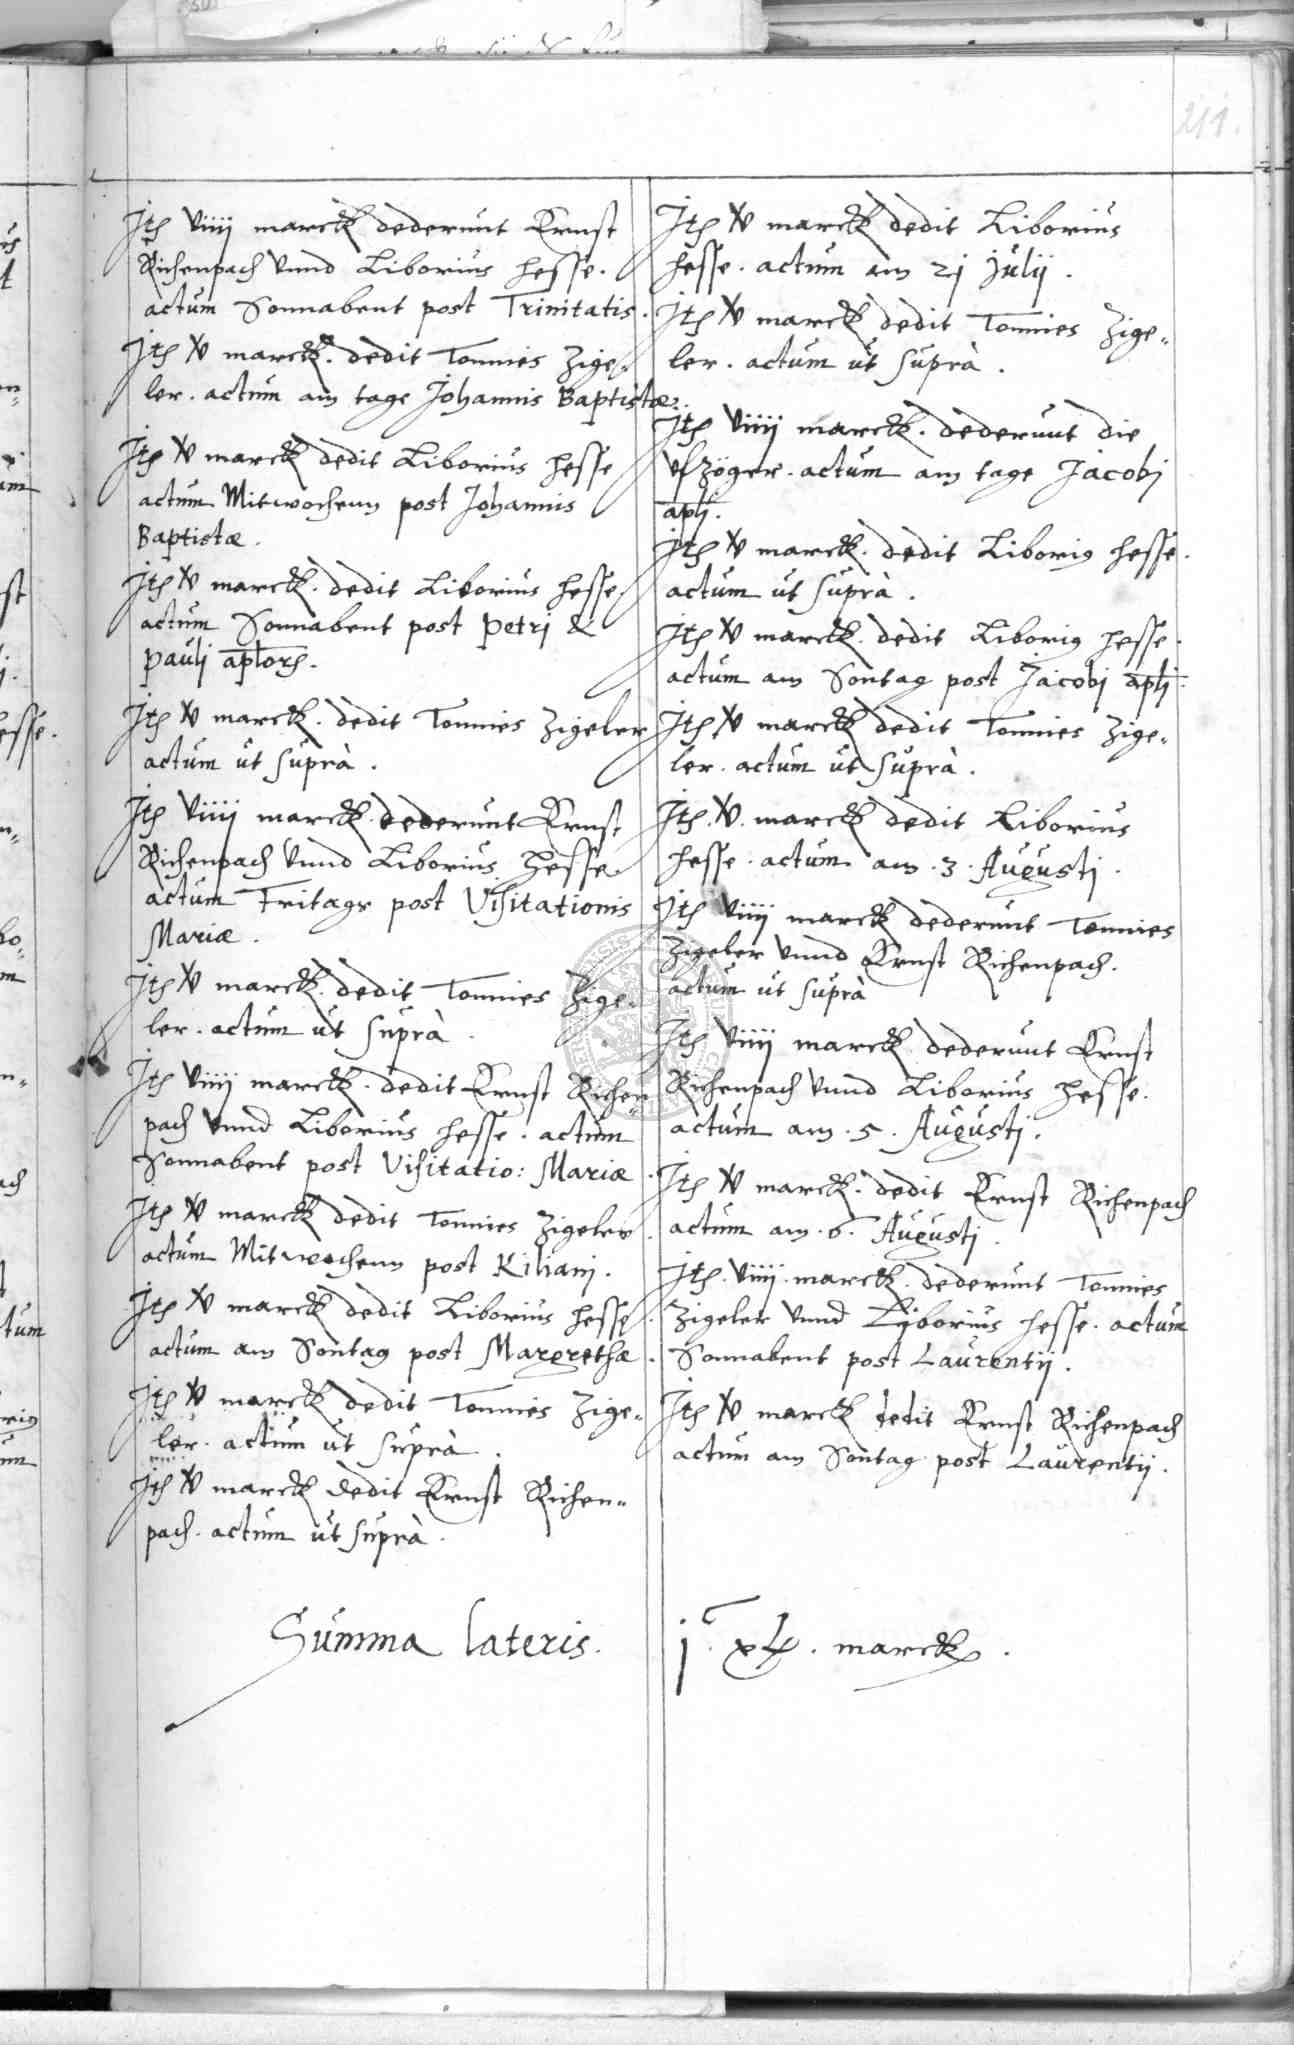 211.
Jtē viiij marckͤ dederunt Ernst
Richenpach vnnd Liborius Hesse.
actum Sonnabent post Trinitatis.
Jtē v̸ marckͤ. dedit Tonnies Zige-
ler. actum am tage Johannis Baptistæ.
Jtē v̸ marckͤ dedit Liborius Hesse
actum Mitwochenn post Johannis
Baptistæ.
Jtē v̸ marckͤ. dedit Liborius Hesse.
actum Sonnabent post Petrj &
Paulj aplorͤ.
Jtē v̸ marckͤ. dedit Tonnies Zigeler
actum ut suprà.
Jtē viiij marckͤ. dederunt Ernst
Richenpach vnnd Liborius Hesse
actum Fritags post Visitationis
Mariæ.
Jtē v̸ marckͤ. dedit Tonnies Zige-
ler. actum ut suprà.
Jtē viiij marckͤ. dedit Ernst Richen
pach vnnd Liborius Hesse. actum
Sonnabent post Visitatio: Mariæ.
Jtē v̸ marckͤ dedit Tonnies Zigeler.
actum Mitwochenn post Kilianj.
Jtē v̸ marckͤ dedit Liborius Hesse.
actum am Sontag post Margrethæ.
Jtē v̸ marckͤ dedit Tonnies Zige-
ler. actum ut suprà.
Jtē v̸ marckͤ dedit Ernst Richen-
pach. actum ut suprà.
Jtē v̸ marckͤ dedit Liborius
Hesse. actum am 21 Julij.
Jtē v̸ marckͤ dedit Tonnies Zige-
ler. actum ut suprà.
Jtē viiij marckͤ. dederunt die
vfzöger. actum am tage Jacobj
aplj.
Jtē v̸ marckͤ. dedit Liborig Hesse.
actum ut suprà.
Jtē v̸ marckͤ. dedit Liborig Hesse.
actum am Sontag post Jacobj aplj.
Jtē v̸ marckͤ dedit Tonnies Zige-
ler. actum ut suprà.
Jtē. v̸. marckͤ dedit Liborius
Hesse. actum am .3. Augustj.
Jtē viiij marckͤ dederunt Tonnies
Zigeler vnnd Ernst Richenpach.
actum ut suprà
Jtē viiij marckͤ dederunt Ernst
Richenpach vnnd Liborius Hesse.
actum am .5. Augustj.
Jtē v̸ marckͤ. dedit Ernst Richenpach
actum am .6. Augustj.
Jtē. viiij. marckͤ. dederunt Tonnies
Zigeler vnnd Lyborius Hesse. actum
Sonnabent post Laurentij.
Jtē v̸ marckͤ dedit Ernst Richenpach
actum am Sontag post Laurentij.
Summa lateris. jᶜ. xl̸. marckͤ.